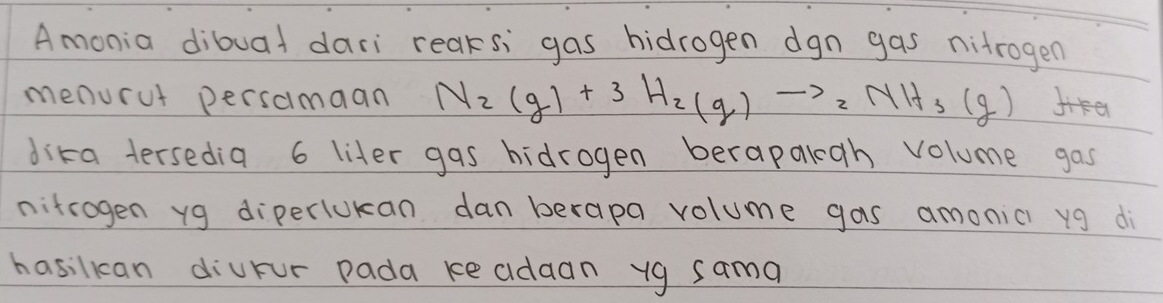 Amonia dibuat dari reaksi gas hidrogen dgn gas nitrogen
menurut persamaan N₂ (g) + 3 H₂ (g) → ₂ NH₃ (g) Jika
Jika tersedia 6 liter gas hidrogen berapakah volume gas
nitrogen yg diperlukan dan berapa volume gas amonia yg di
hasilkan diukur pada keadaan yg sama